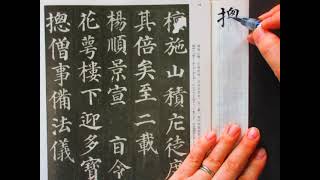 檀施山積庀徒度
其倍矣至二載
楊順景宣旨令
花萼樓下迎多寶
揔僧事備法儀